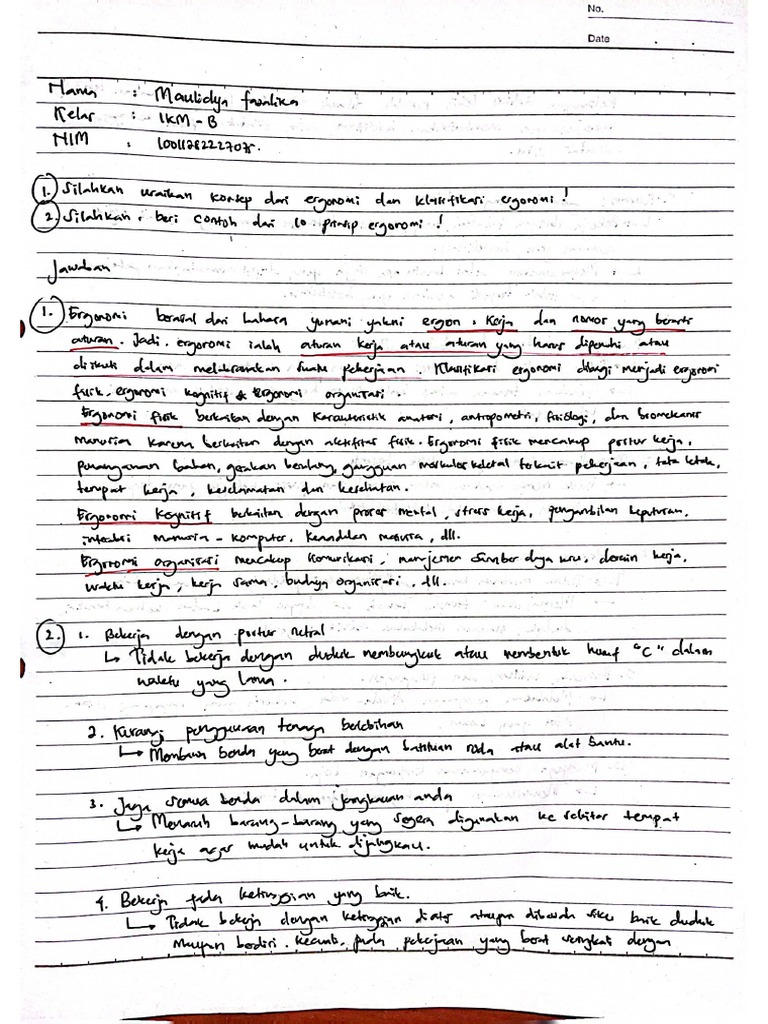 No.
Date
Nama : Maulidya fazalika
Kelas : IKM - B
NIM : 10011282227075.
1. Silahkan uraikan konsep dari ergonomi dan klasifikasi ergonomi !
2. Silahkan beri contoh dari 10 prinsip ergonomi !
Jawaban
1. Ergonomi berasal dari bahasa yunani yakni ergon : kerja dan nomos yang berarti
aturan. Jadi, ergonomi ialah aturan kerja atau aturan yang harus dipenuhi atau
diikuti dalam melaksanakan suatu pekerjaan. Klasifikasi ergonomi dibagi menjadi ergonomi
fisik, ergonomi kognitif & ergonomi organisasi.
Ergonomi fisik berkaitan dengan karakteristik anatomi, antropometri, fisiologi, dan biomekanis
manusia karena berkaitan dengan aktifitas fisik. Ergonomi fisik mencakup postur kerja,
penanganan bahan, gerakan berulang, gangguan muskuloskeletal terkait pekerjaan, tata letak,
tempat kerja, keselamatan dan kesehatan.
Ergonomi Kognitif berkaitan dengan proses mental, stress kerja, pengambilan keputusan,
interaksi manusia - komputer, keandalan manusia, dll.
Ergonomi organisasi mencakup komunikasi, manajemen sumber daya kru, desain kerja,
waktu kerja, kerja sama, budaya organisasi, dll.
2. 1. Bekerja dengan postur netral
↳ Tidak bekerja dengan duduk membungkuk atau membentuk huruf "C" dalam
waktu yang lama.
2. Kurangi penggunaan tenaga berlebihan
↳ Membawa benda yang berat dengan bantuan roda atau alat bantu.
3. Jaga semua benda dalam jangkauan anda
↳ Menaruh barang-barang yang segera digunakan ke sekitar tempat
kerja agar mudah untuk dijangkau.
4. Bekerja pada ketinggian yang baik.
↳ Tidak bekerja dengan ketinggian diatas ataupun dibawah siku baik duduk
maupun berdiri. Kecuali pada pekerjaan yang berat dengan